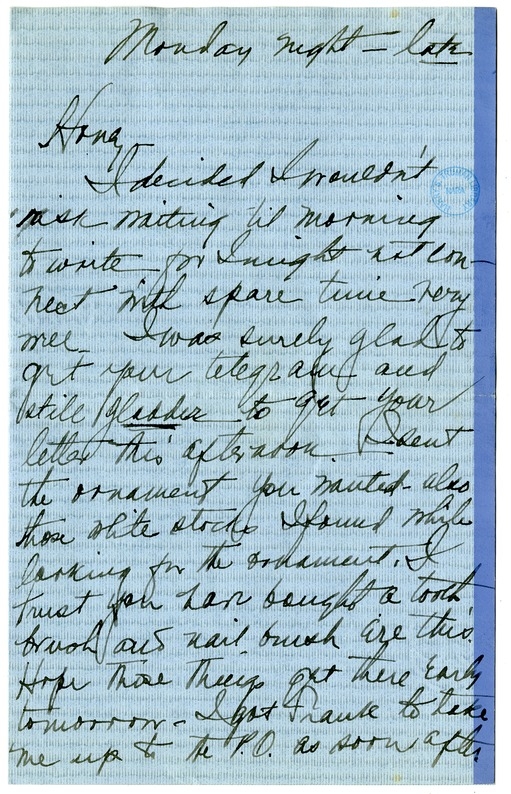 Monday night - late
Honey
I decided I wouldn't
risk waiting til morning
to write for I might not con-
nect with spare time very
well. I was surely glad to
get your telegram and
still gladder to get your
letter this afternoon. I sent
the ornament you wanted - also
those white stocks I found while
looking for the ornament. I
trust you have bought a tooth
brush and nail brush ere this.
Hope those things get there early
tomorrow - I got Frank to take
me up to the P.O. as soon after